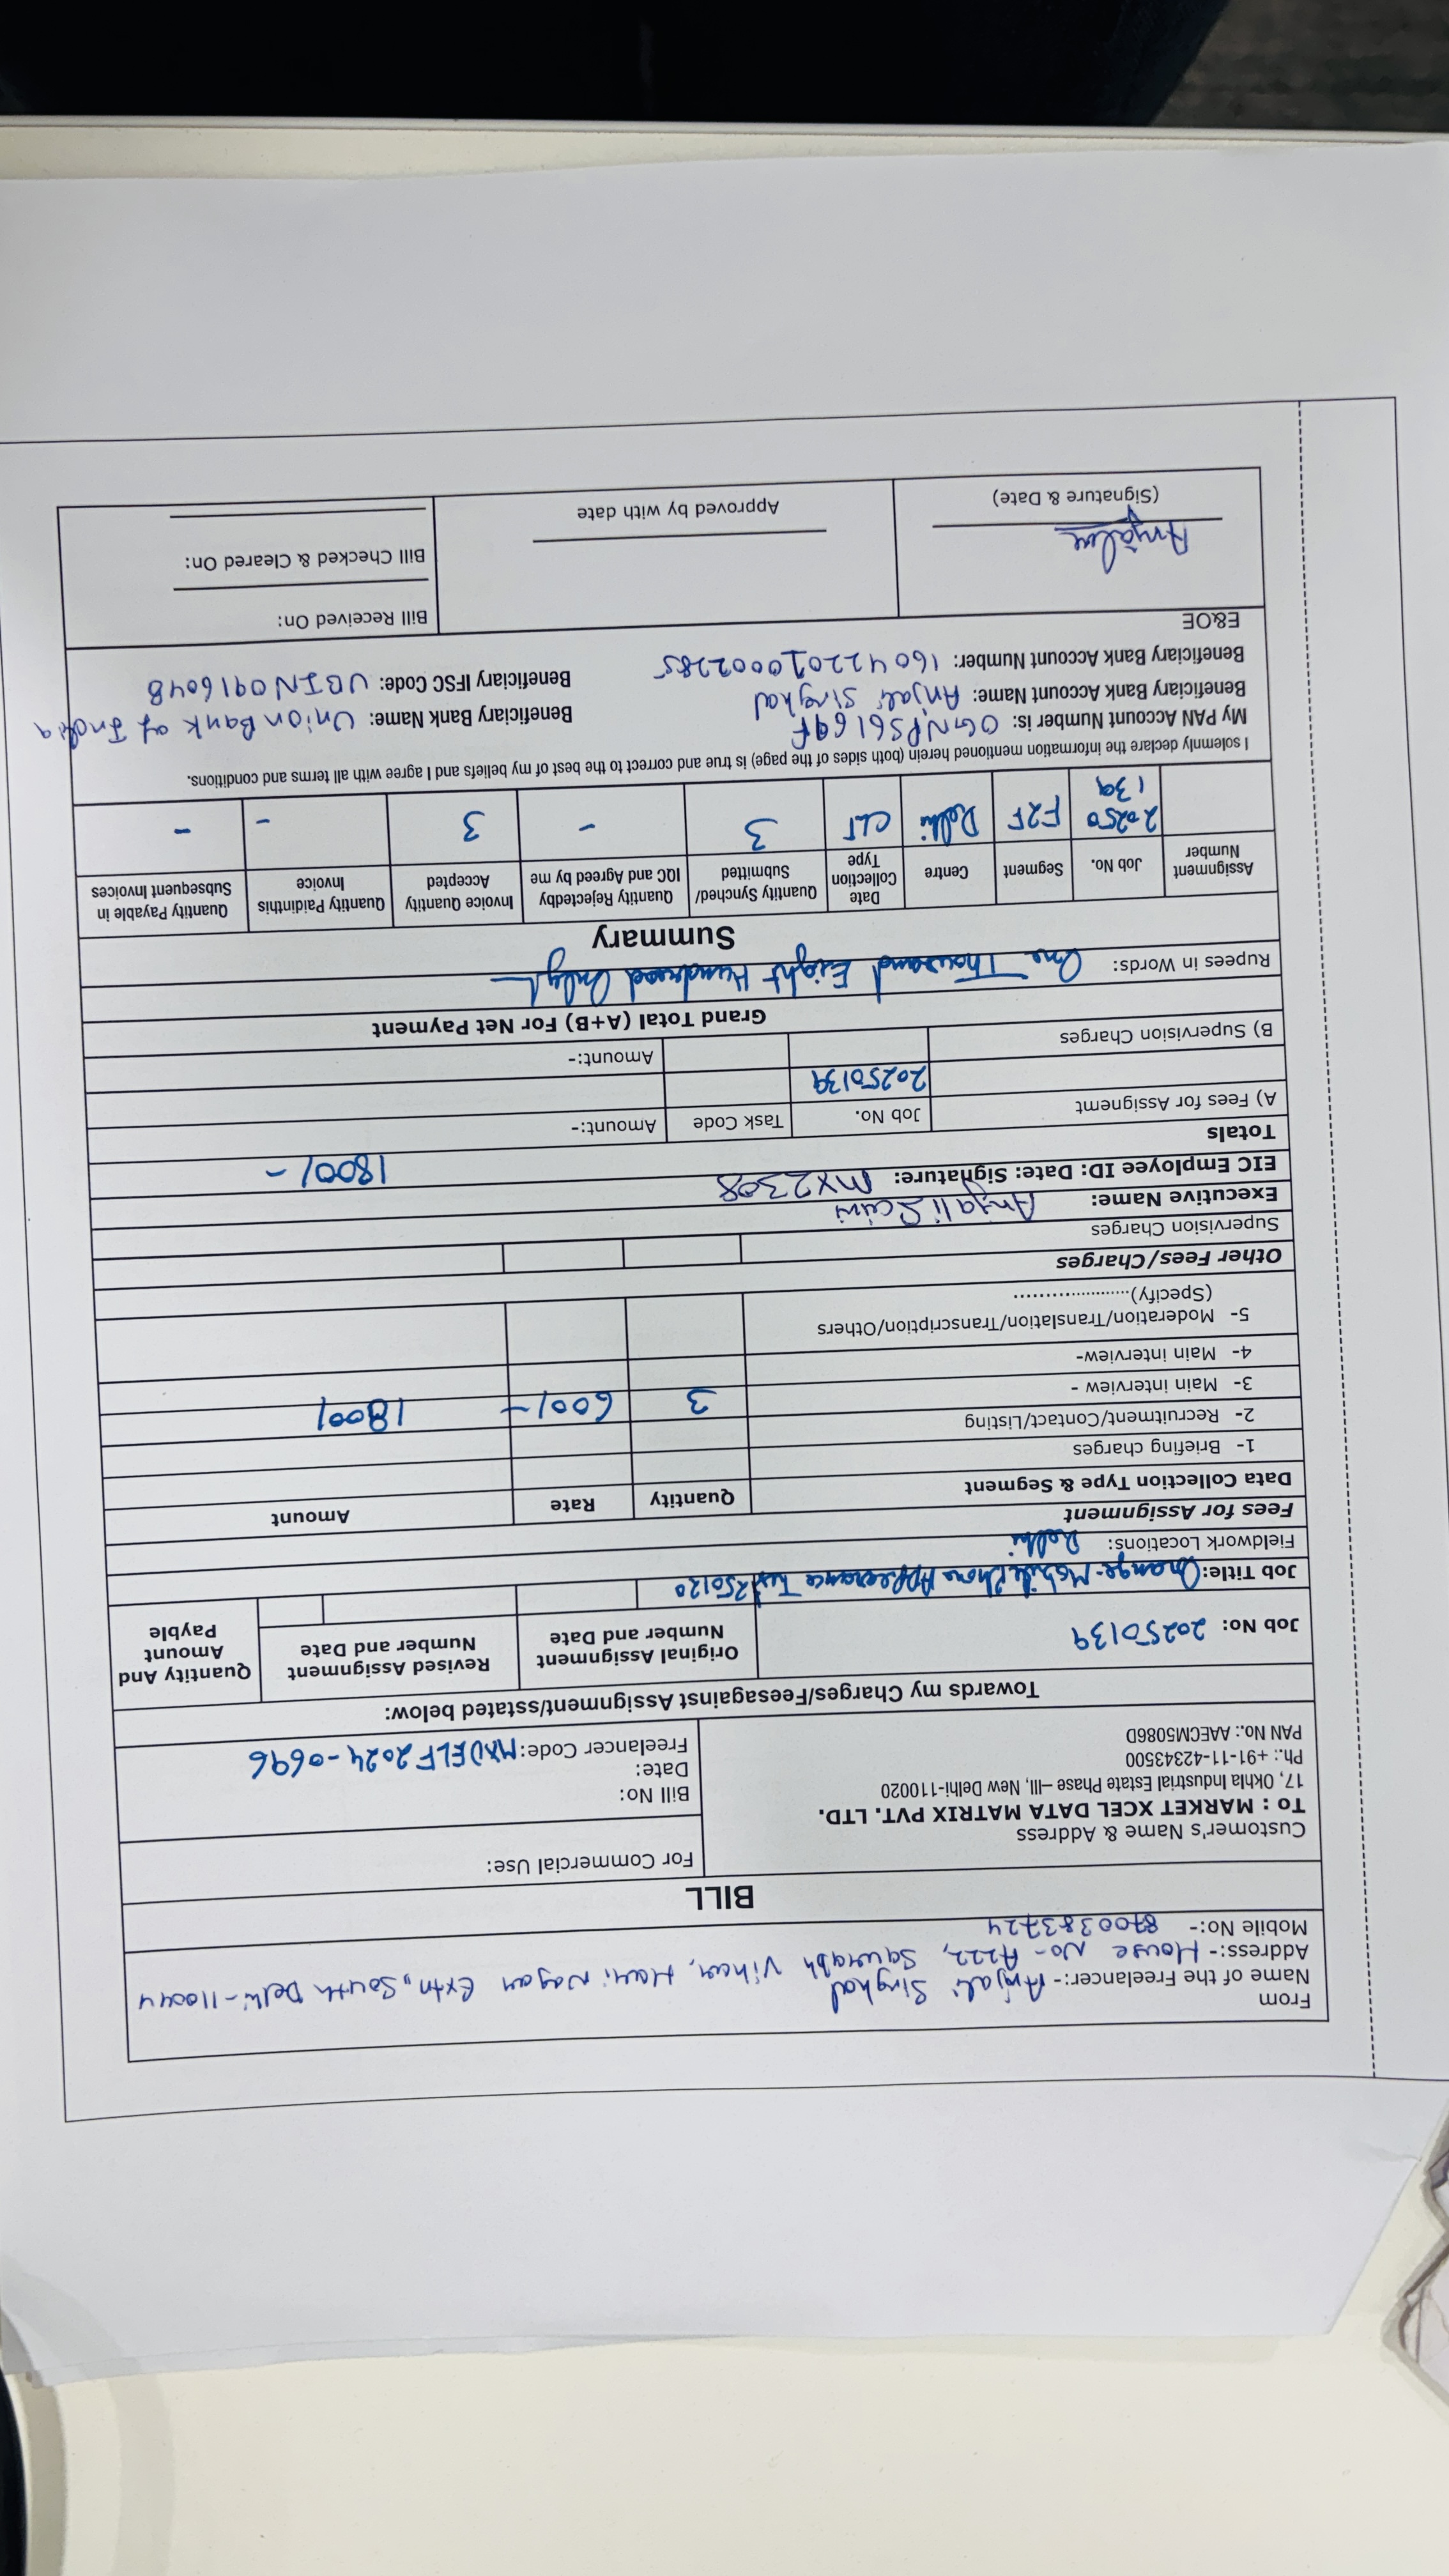 From
Name of the Freelancer:- Anjali Singhal
Address:- House No- A222, Saurabh Vihar, Hari Nagar Extn, South Delhi-110044
Mobile No:- 8700383724
BILL
Customer's Name & Address
To : MARKET XCEL DATA MATRIX PVT. LTD.
17, Okhla Industrial Estate Phase –III, New Delhi-110020
Ph.: +91-11-42343500
PAN No.: AAECM5086D
For Commercial Use:
Bill No:
Date:
Freelancer Code: MXDELF2024-0696
Towards my Charges/Feesagainst Assignment/sstated below:
Job No: 20250139
Original Assignment Number and Date
Revised Assignment Number and Date
Quantity And Amount Payble
Job Title: Orange-Mobile Phone Appearance Test 250120
Fieldwork Locations: Delhi
Fees for Assignment
Data Collection Type & Segment Quantity Rate Amount
1- Briefing charges
2- Recruitment/Contact/Listing
3- Main interview - 3 600/- 1800/
4- Main interview-
5- Moderation/Translation/Transcription/Others
(Specify)........................
Other Fees/Charges
Supervision Charges
Executive Name: Anjali Saini
EIC Employee ID: Date: Signature: MX2308
Totals 1800/-
A) Fees for Assignemt Job No. Task Code Amount:-
20250139
B) Supervision Charges Amount:-
Grand Total (A+B) For Net Payment
Rupees in Words: One Thousand Eight Hundred Only/-
Summary
Assignment Number Job No. Segment Centre Date Collection Type Quantity Synched/ Submitted Quantity Rejectedby IQC and Agreed by me Invoice Quantity Accepted Quantity Paidinthis Invoice Quantity Payable in Subsequent Invoices
20250139 F2F Delhi CLT 3 - 3 - -
I solemnly declare the information mentioned herein (both sides of the page) is true and correct to the best of my beliefs and I agree with all terms and conditions.
My PAN Account Number is: OGNPS6169F
Beneficiary Bank Name: Union Bank of India
Beneficiary Bank Account Name: Anjali Singhal
Beneficiary IFSC Code: UBIN0916048
Beneficiary Bank Account Number: 160422010002285
E&OE
Anjali
(Signature & Date)
Approved by with date
Bill Received On:
Bill Checked & Cleared On: